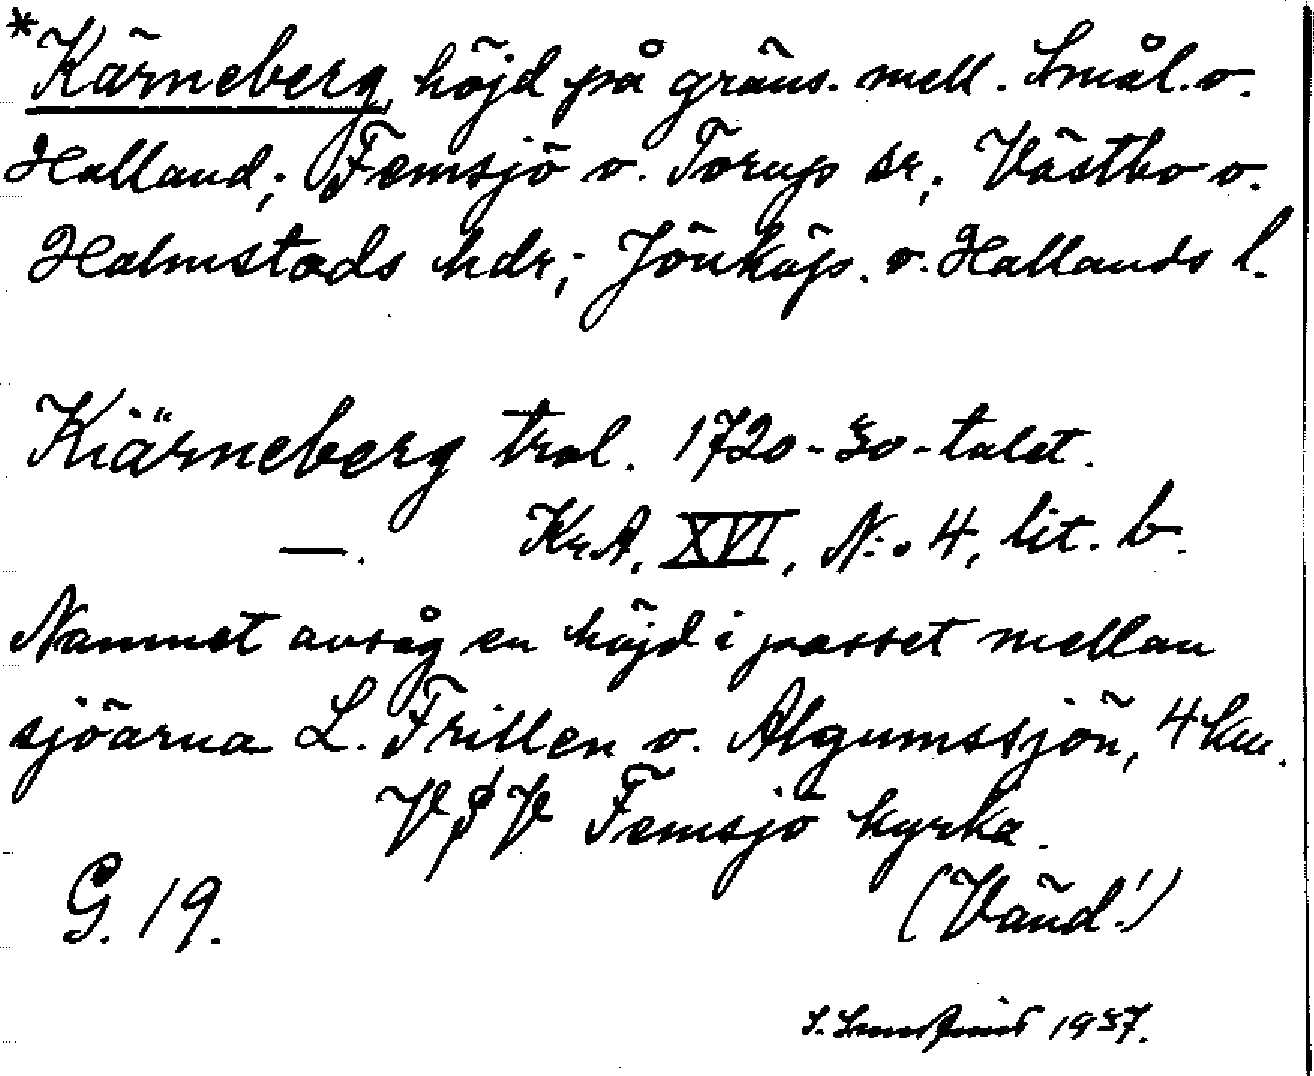 *Kärneberg, höjd på gräns. mell. Smål. o.
Halland; Femsjö o. Torup sr, Västbo o.
Halmstads hdr; Jönköp. o. Hallands l.
Kiärneberg trol. 1720-30-talet.
—. Kr.A. XVI, N:o 4, lit. b.
Namnet avsåg en höjd i passet mellan
sjöarna L. Frillen o. Algumssjön, 4 km.
V Femsjö kyrka.
G. 19. (Vänd!)
1937.